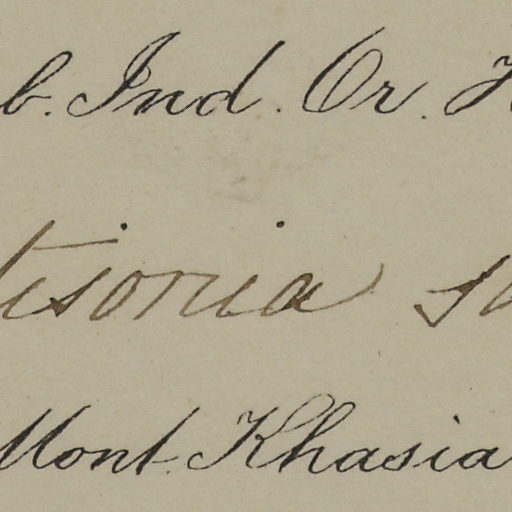 b. Ind. Or. H
tisonia s
Mont. Khasia